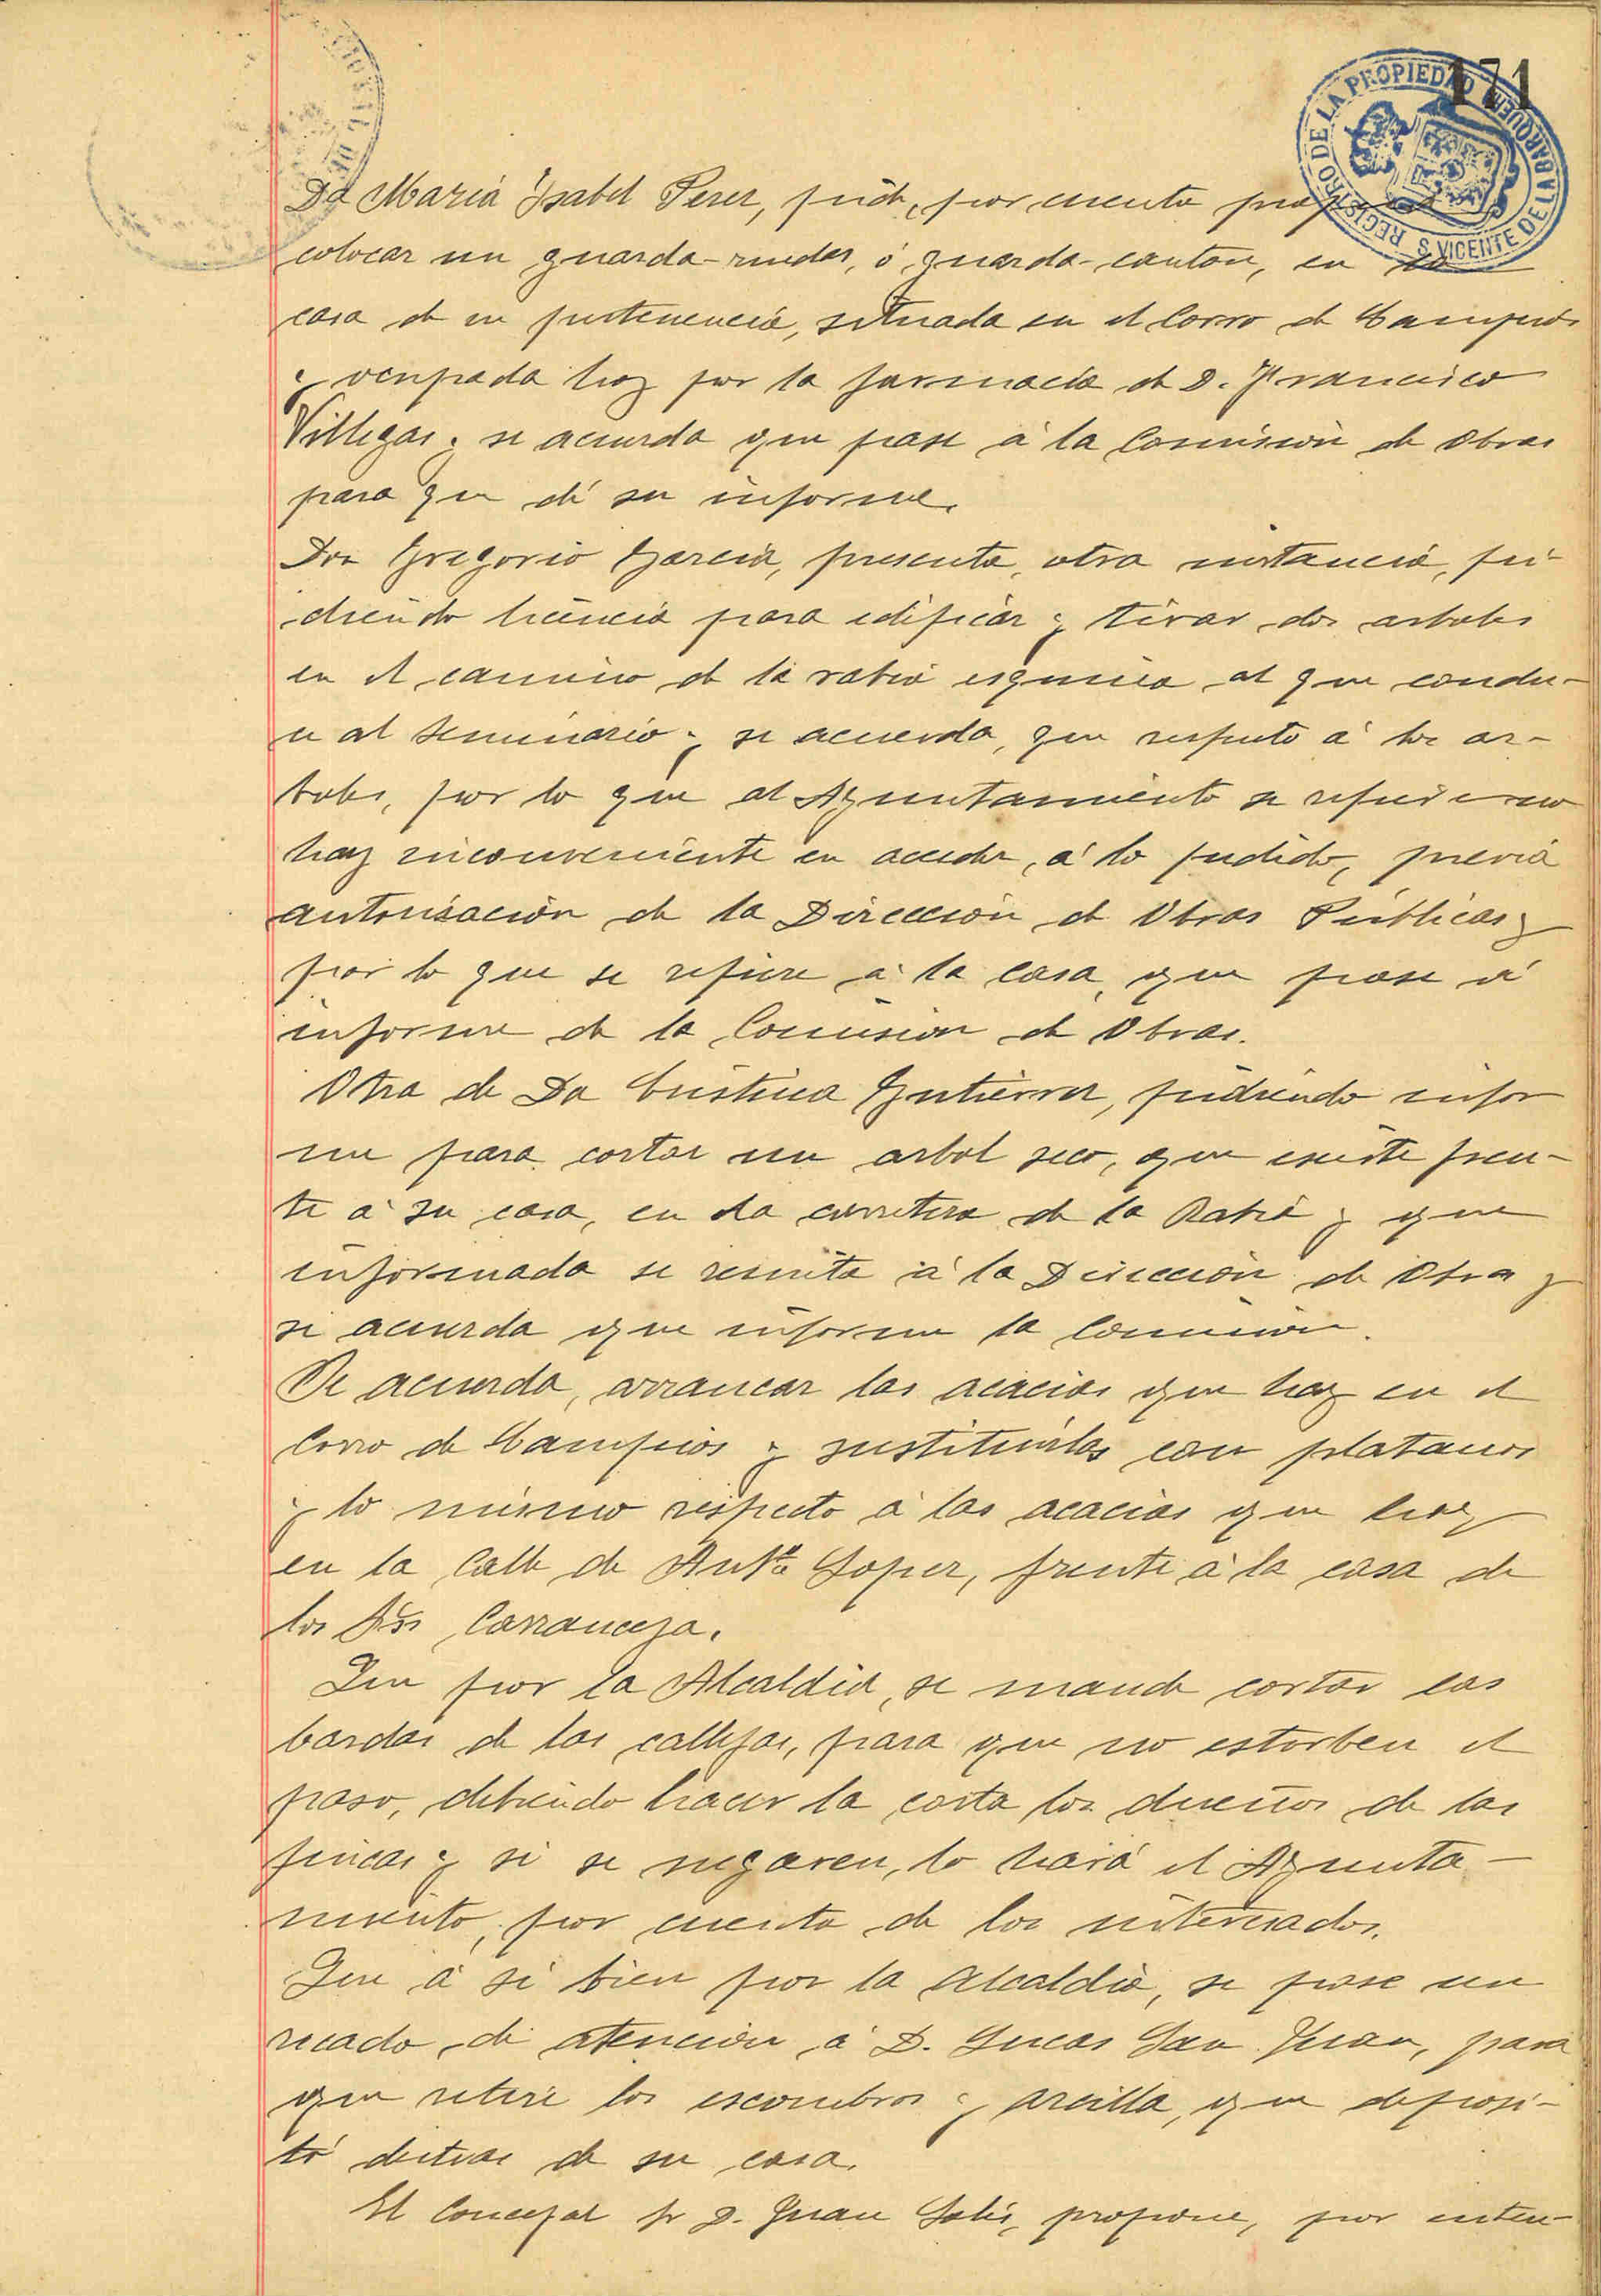 171
REGISTRO DE LA PROPIEDAD
S. VICENTE DE LA BARQUERA
Da Maria Ysabel Perez, pide, por cuenta propia
colocar un guarda-ruedas, ó guarda-canton, en la
casa de su pertenencia, situada en el Corro de Campios
y ocupada hoy por la farmacia de D. Francisco
Villegas y se acuerda que pase á la Comisión de Obras
para que dé su informe.
Don Gregorio Garcia, presenta otra instancia, pi-
diendo licencia para edificar y tirar dos arboles
en el camino de la rabia esquina al que condu-
ce al Seminario y se acuerda, que respecto á los ar-
boles, por lo que al Ayuntamiento se refiere no
hay inconveniente en acceder, á lo pedido, previa
autorisación de la Dirección de Obras Públicas y
por lo que se refiere á la casa, que pase á
informe de la Comision de Obras.
Otra de Da Cristina Gutierrez, pidiendo infor
me para cortar un arbol seco, que existe fren-
te á su casa, en la carretera de la Rabia y que
informada se remita á la Dirección de Obras y
se acuerda que informe la Comision.
Se acuerda, arrancar las acacias que hay en el
Corro de Campios y sustituirlas con platanos
y lo mismo respecto á las acacias que hay
en la Calle de Antº Lopez, frente á la casa de
los Srs Carranceja.
Que por la Alcaldia, se mande cortar las
bardas de las callejas, para que no estorben el
paso, debiendo hacer la corta los dueños de las
fincas y si se negaren, lo hará el Ayunta-
miento, por cuenta de los interesados.
Que á si bien por la Alcaldia, se pase un
recado de atención á D. Lucas San Juan, para
que retire los escombros y arcilla, que deposi-
tó detras de su casa.
El Concejal Sr D. Juan Solís, propone, por enten-